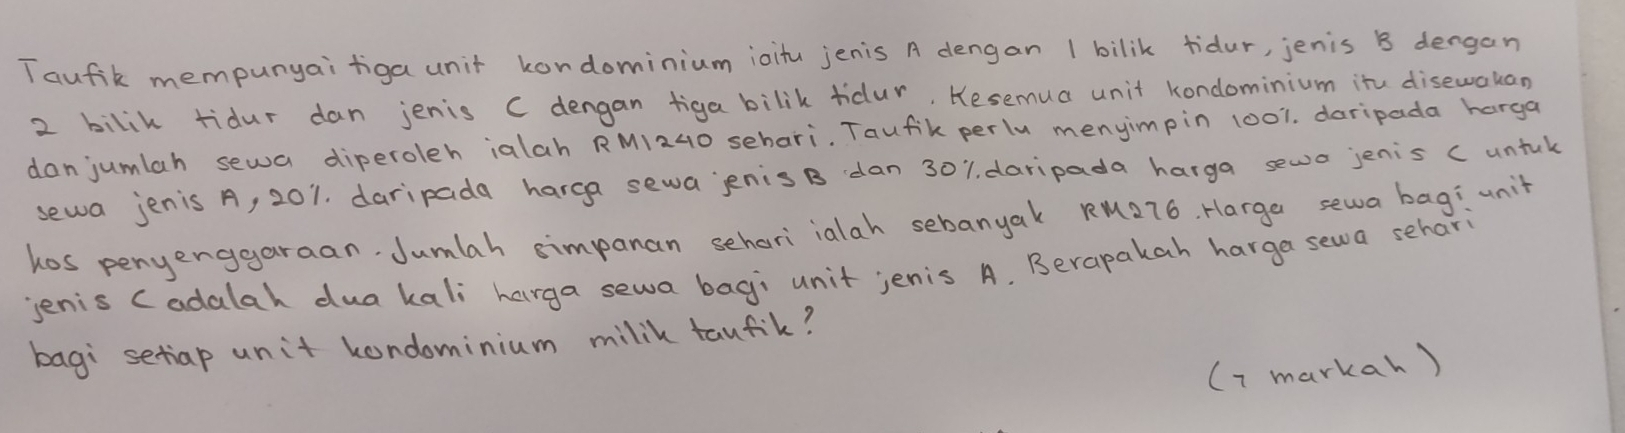 Taufik mempunyai tiga unit kondominium iaitu jenis A dengan 1 bilik tidur, jenis B dengan
2 bilik tidur dan jenis C dengan tiga bilik tidur. Kesemua unit kondominium itu disewakan
dan jumlah sewa diperoleh ialah RM1240 sehari. Taufik perlu menyimpin 100%. daripada harga
sewa jenis A, 20%. daripada harga sewa jenis B dan 30%. daripada harga sewa jenis C untuk
kos penyenggaraan. Jumlah simpanan sehari ialah sebanyak RM276. Harga sewa bagi unit
jenis C adalah dua kali harga sewa bagi unit jenis A. Berapakah harga sewa sehari
bagi setiap unit kondominium milik taufik?
(7 markah)